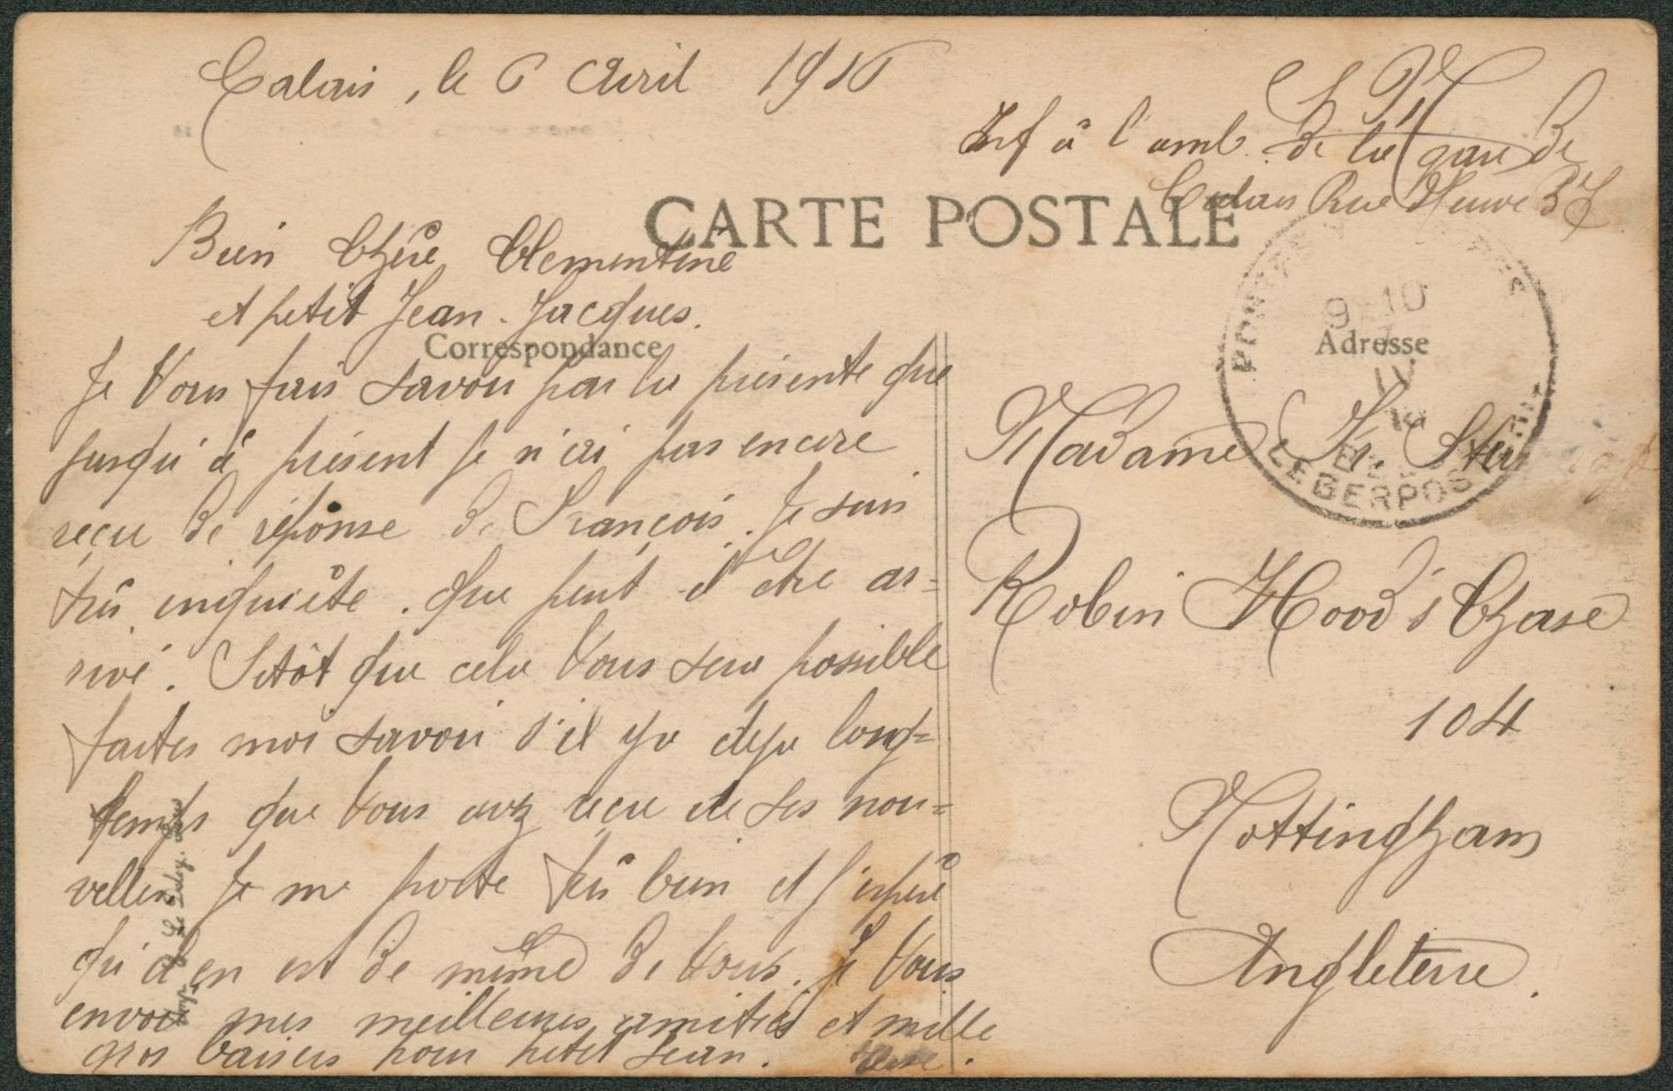 Calais, le 6 Avril 1916
Inf à l'amb. de la gare de
Calais Rue Neuve 37
CARTE POSTALE
Bien Chère Clementine
et petit Jean-Jacques.
Correspondance
Je Vous fais savoir par la présente que
jusqu'à présent je n'ai pas encore
reçu de réponse de François. Je suis
très inquiète. Que peut il être ar=
rivé. Sitôt que cela Vous sera possible
faites moi savoir s'il y a deja long=
temps que Vous avez reçu de ses nou=
velles. Je me porte très bien et j'espère
qu'il en est de même de Vous. Je Vous
envoie mes meilleures amitiés et mille
gros baisers pour petit Jean.
Adresse
Madame Fr.
Robin Hood's Chase
104
Nottingham
Angleterre.
9-10
LEGERPOS